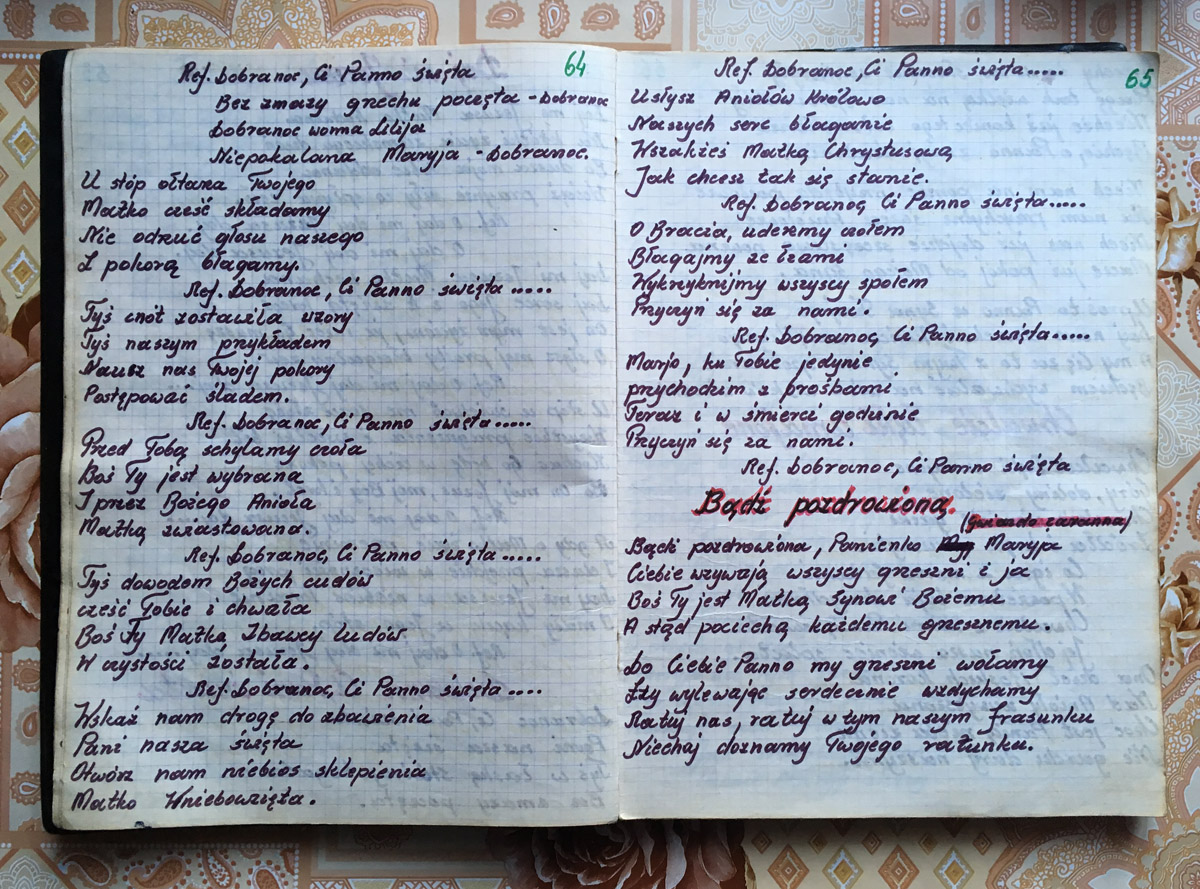 64
Ref. Dobranoc, Ci Panno święta
Bez zmazy grzechu poczęta - Dobranoc
Dobranoc wonna Lilija
Niepokalana Maryja - Dobranoc.
U stóp ołtarza Twojego
Matko cześć składamy
Nie odrzuć głosu naszego
Z pokorą błagamy.
Ref. Dobranoc, Ci Panno święta.....
Tyś cnót zostawiła wzory
Tyś naszym przykładem
Naucz nas Twojej pokory
Postępować śladem.
Ref. Dobranoc, Ci Panno święta.....
Przed Tobą schylamy czoła
Boś Ty jest wybrana
I przez Bożego Anioła
Matką zwiastowana.
Ref. Dobranoc, Ci Panno święta.....
Tyś dowodem Bożych cudów
cześć Tobie i chwała
Boś Ty Matką Zbawcy ludów
W czystości została.
Ref. Dobranoc, Ci Panno święta....
Wskaż nam drogę do zbawienia
Pani nasza święta
Otwórz nam niebios sklepienia
Matko Wniebowzięta.
65
Ref. Dobranoc, Ci Panno święta.....
Usłysz Aniołów Królowo
Naszych serc błaganie
Wszakżeś Matką Chrystusową
Jak chcesz tak się stanie.
Ref. Dobranoc, Ci Panno święta.....
O Bracia, uderzmy czołem
Błagajmy ze łzami
Wykrzyknijmy wszyscy społem
Przyczyń się za nami.
Ref. Dobranoc, Ci Panno święta.....
Marjo, ku Tobie jedynie
przychodzim z prośbami
Teraz i w śmierci godzinie
Przyczyń się za nami.
Ref. Dobranoc, Ci Panno święta
Bądź pozdrowioną.
(gwiazdo zaranna)
Bądź pozdrowiona, Panienko Maryja
Ciebie wzywają wszyscy grzeszni i ja
Boś Ty jest Matką Synowi Bożemu
A stąd pociechą każdemu grzesznemu.
Do Ciebie Panno my grzeszni wołamy
Łzy wylewając serdecznie wzdychamy
Ratuj nas, ratuj w tym naszym frasunku
Niechaj doznamy Twojego ratunku.